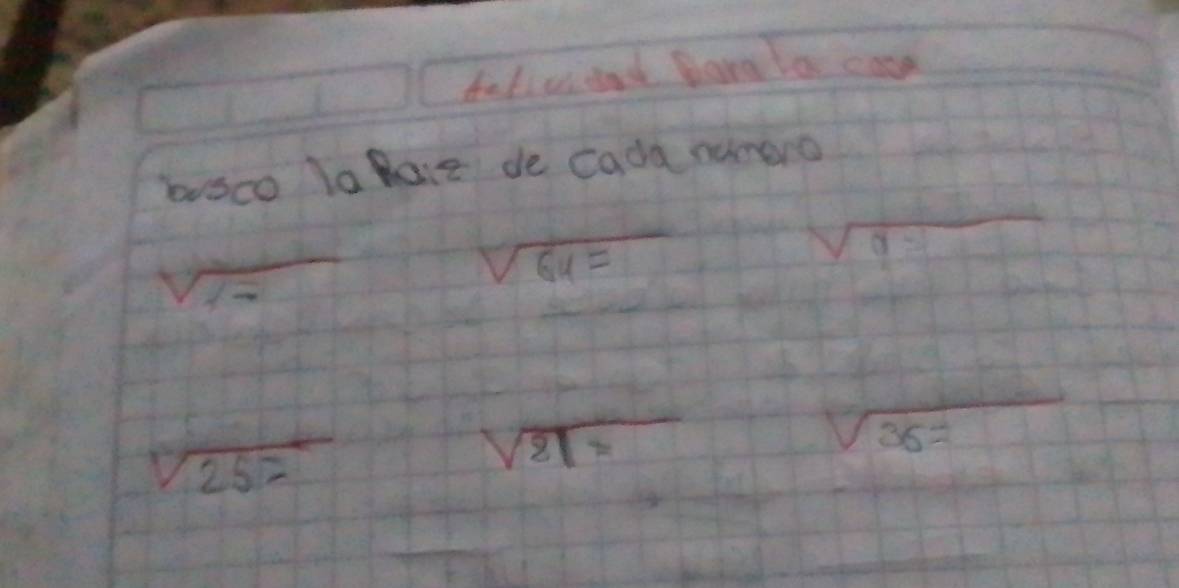 Actividad Para la casa
busco la Raiz de cada numero
√1= √64= √9=
√25= √81= √36=